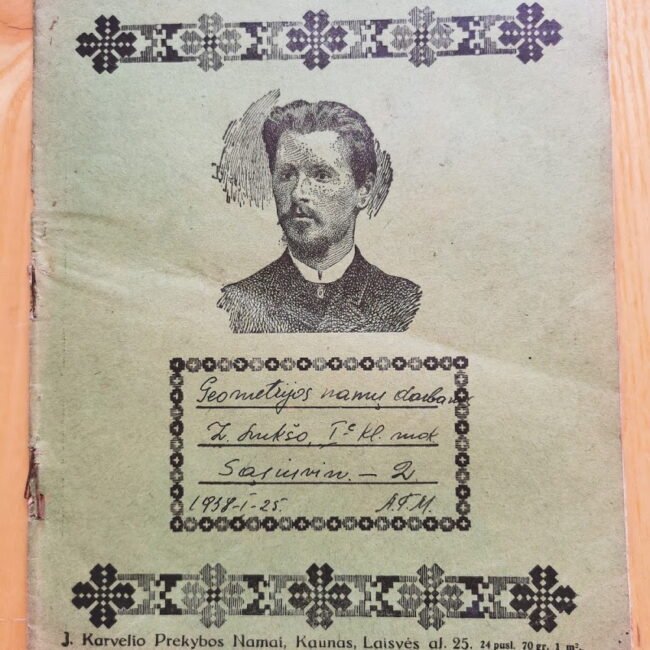 Geometrijos namų darbams
Z. Lukšo, I c kl. mok
Sąsiuvin. – 2
1938-I-25. A.T.M.
J. Karvelio Prekybos Namai, Kaunas, Laisvės al. 25. 24 pusl. 70 gr. 1 m².